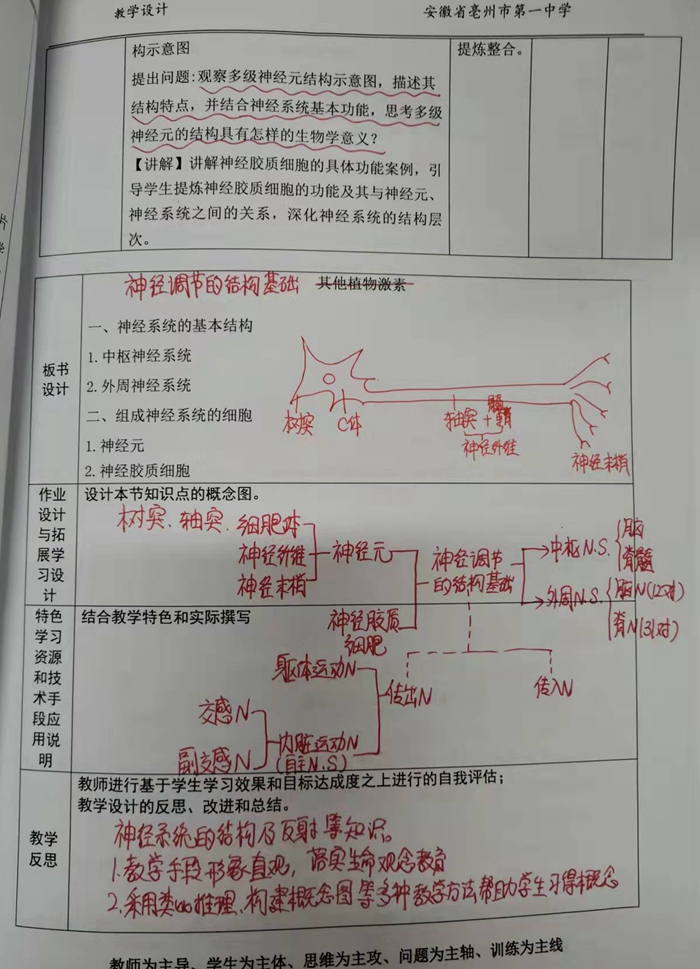 教学设计
安徽省亳州市第一中学
构示意图
提炼整合。
提出问题:观察多级神经元结构示意图，描述其
结构特点，并结合神经系统基本功能，思考多级
神经元的结构具有怎样的生物学意义？
【讲解】讲解神经胶质细胞的具体功能案例，引
导学生提炼神经胶质细胞的功能及其与神经元、
神经系统之间的关系，深化神经系统的结构层
次。
神经调节的结构基础 其他植物激素
板书
设计
一、神经系统的基本结构
1.中枢神经系统
2.外周神经系统
二、组成神经系统的细胞
1.神经元
2.神经胶质细胞
树突
C体
轴突+髓鞘
神经纤维
神经末梢
作业
设计
与拓
展学
习设
计
设计本节知识点的概念图。
树突、轴突、细胞体
神经纤维
神经末梢
神经元
神经胶质
细胞
神经调节
的结构基础
中枢N.S.
脑
脊髓
外周N.S.
脑N(12对)
脊N(31对)
特色
学习
资源
和技
术手
段应
用说
明
结合教学特色和实际撰写
躯体运动N
传出N
传入N
交感N
副交感N
内脏运动N
(自主N.S)
教学
反思
教师进行基于学生学习效果和目标达成度之上进行的自我评估；
教学设计的反思、改进和总结。
神经系统的结构及反射等知识。
1.教学手段形象直观，落实生命观念教育
2.采用类比推理、构建概念图等多种教学方法帮助学生习得概念
教师为主导、学生为主体、思维为主攻、问题为主轴、训练为主线